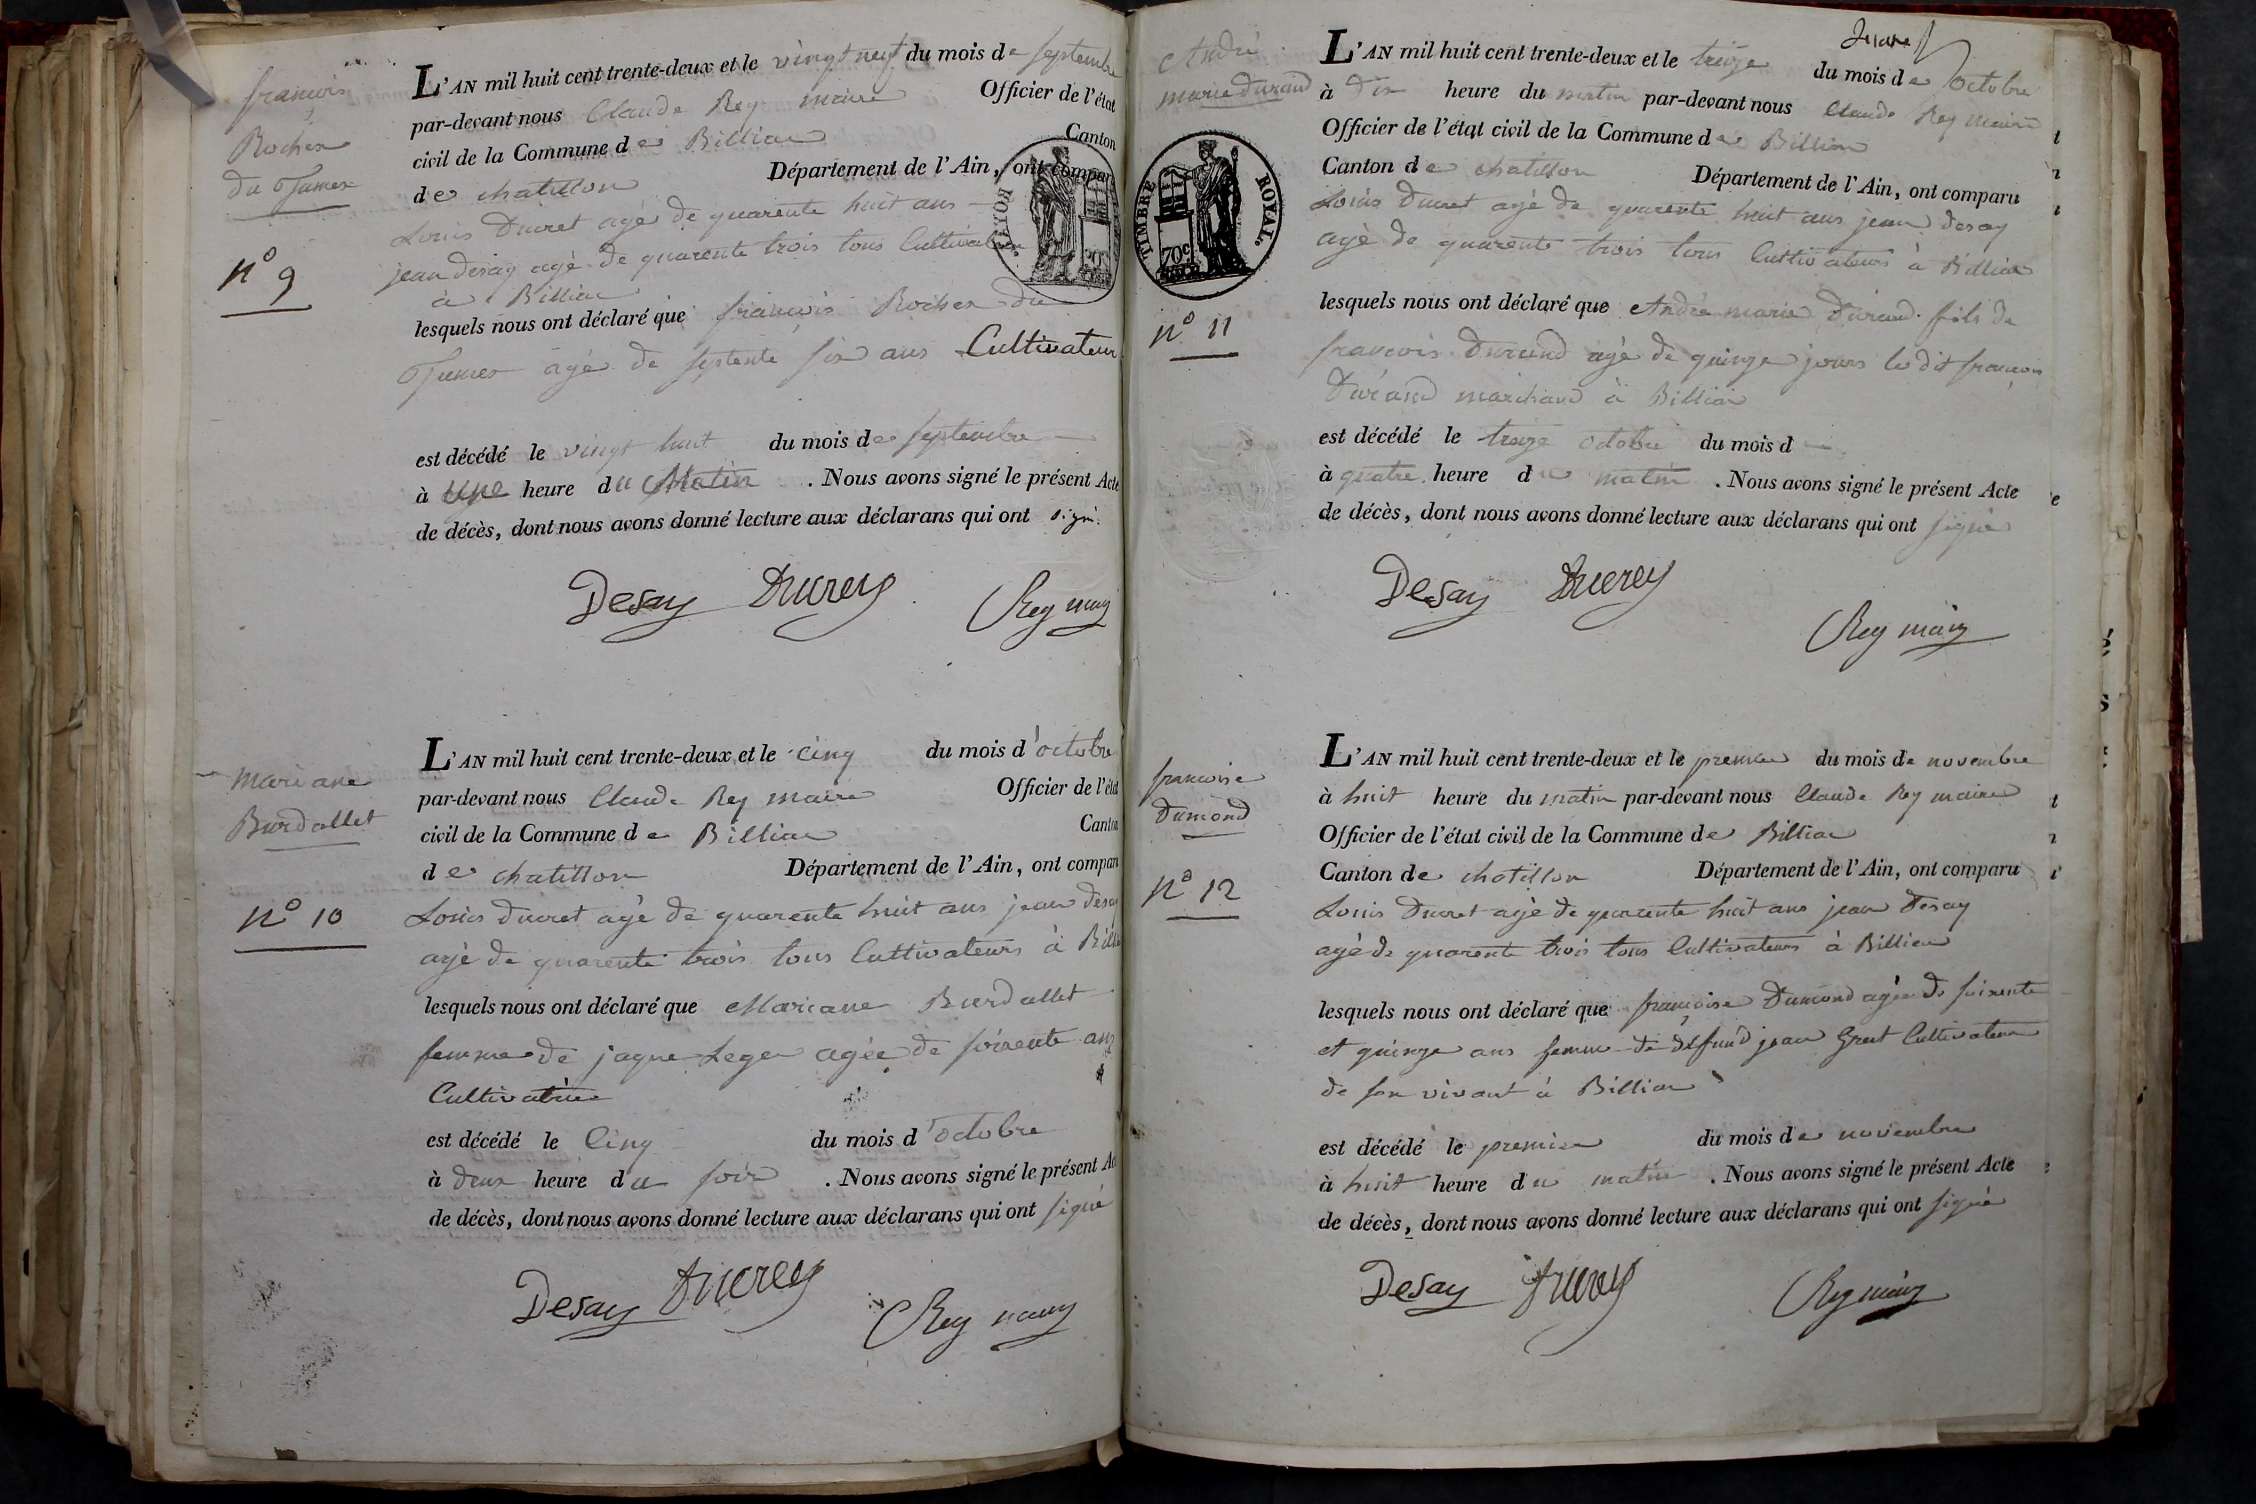 françois
Rochex
du Tumex
n° 9
L'AN mil huit cent trente-deux et le vingt neuf du mois de septembre
par-devant nous Claude Rey maire Officier de l'état
civil de la Commune de Billiac Canton
de chatillon Département de l'Ain, ont compar
Louis Ducret agé de quarente huit ans
jean desay agé de quarente trois tous Cultivateurs
à Billiac
lesquels nous ont déclaré que françois Rochex du
agé de septente six ans Cultivateur
est décédé le vingt huit du mois de septembre
à une heure du Matin . Nous avons signé le présent Acte
de décès, dont nous avons donné lecture aux déclarans qui ont signé
Desay Ducrey
Rey maire
ROYAL
mariane
Burdallet
n° 10
L'AN mil huit cent trente-deux et le cinq du mois d'octobre
par-devant nous Claude Rey maire Officier de l'état
civil de la Commune de Billiac Canton
de chatillon Département de l'Ain, ont comparu
Louis Ducret agé de quarente huit ans jean desay
agé de quarente trois tous Cultivateurs à Bill
lesquels nous ont déclaré que Mariane Burdallet
femme de jaque Leger agée de soixente ans
Cultivatrice
est décédé le Cinq du mois d'octobre
à deux heure du soir . Nous avons signé le présent Ac
de décès, dont nous avons donné lecture aux déclarans qui ont signé
Desay Ducrey
Rey maire
André
marie durand
TIMBRE ROYAL.
70c
n° 11
L'AN mil huit cent trente-deux et le treize du mois de octobre
à dix heure du matin par-devant nous Claude Rey maire
Officier de l'état civil de la Commune de Billiac
Canton de chatillon Département de l'Ain, ont comparu
Louis Ducret agé de quarente huit ans jean desay
agé de quarente trois tous Cultivateurs à Billiac
lesquels nous ont déclaré que André marie Durand fils de
françois Durand agé de quinze jours le dit françois
Durand marchand à Billiac
est décédé le treize octobre du mois d
à quatre heure du matin . Nous avons signé le présent Acte
de décès, dont nous avons donné lecture aux déclarans qui ont signé
Desay Ducrey
Rey maire
francoise
Dumond
n° 12
L'AN mil huit cent trente-deux et le premier du mois de novembre
à huit heure du matin par-devant nous Claude Rey maire
Officier de l'état civil de la Commune de Billiac
Canton de chatillon Département de l'Ain, ont comparu
Louis Ducret agé de quarente huit ans jean Desay
agé de quarente trois tous Cultivateurs à Billiac
lesquels nous ont déclaré que françoise Dumond agée de soixente
et quinze ans femme de défund jean Cultivateur
de son vivant à Billiac
est décédé le premier du mois de novembre
à huit heure du matin . Nous avons signé le présent Acte
de décès, dont nous avons donné lecture aux déclarans qui ont signé
Desay Ducrey
Rey maire